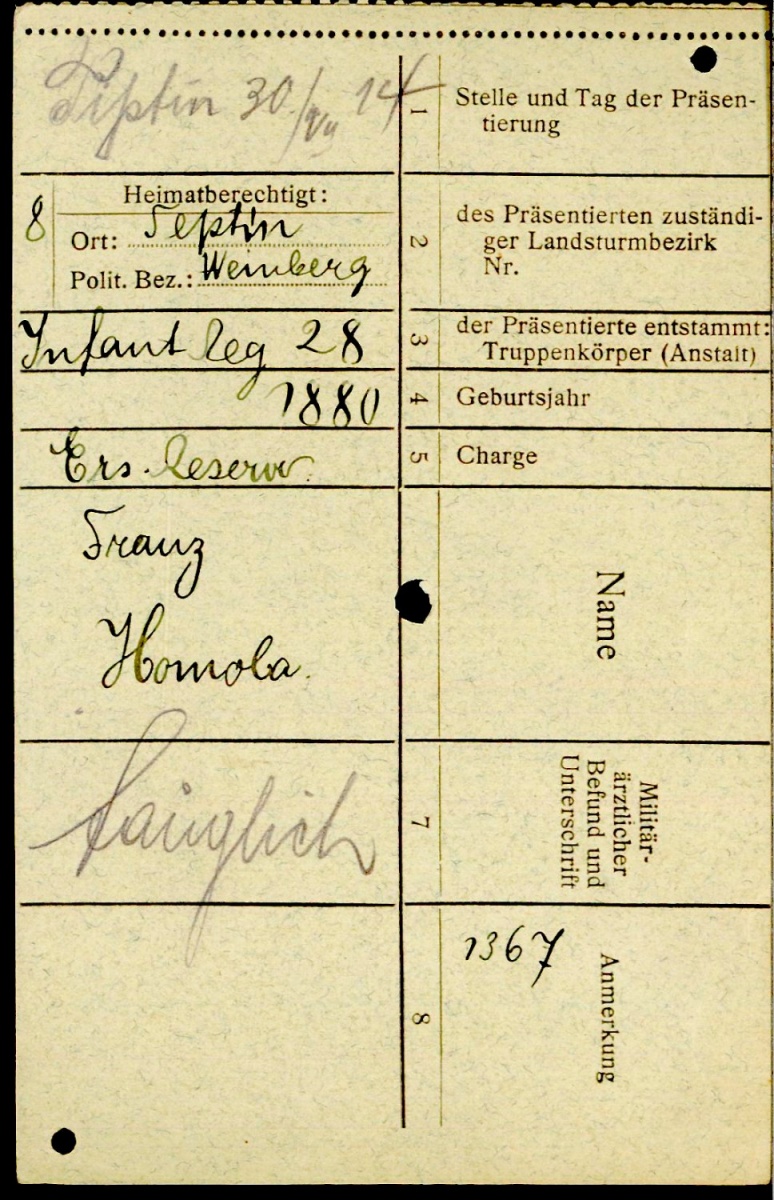 30/VII 14
1
Stelle und Tag der Präsen-
tierung
8
Heimatberechtigt:
Ort: Teptin
Polit. Bez.: Weinberg
2
des Präsentierten zuständi-
ger Landsturmbezirk
Nr.
Infant Reg 28
3
der Präsentierte entstammt:
Truppenkörper (Anstalt)
1880
4
Geburtsjahr
Ers. Reserv.
5
Charge
Franz
Homola.
Name
tauglich
7
Militär-
ärztlicher
Befund und
Unterschrift
8
1367
Anmerkung